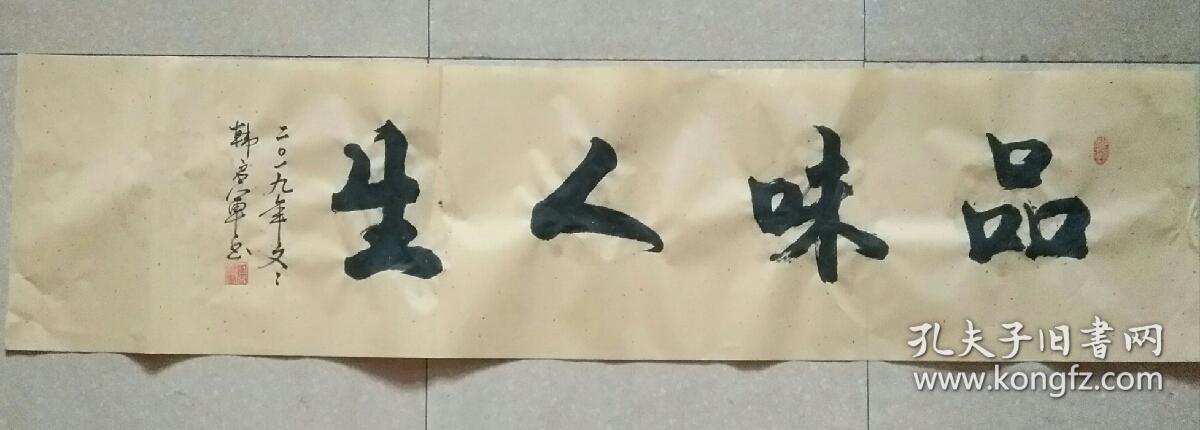 品味人生
二〇一九年文
韩 军书
孔夫子旧书网
www.kongfz.com